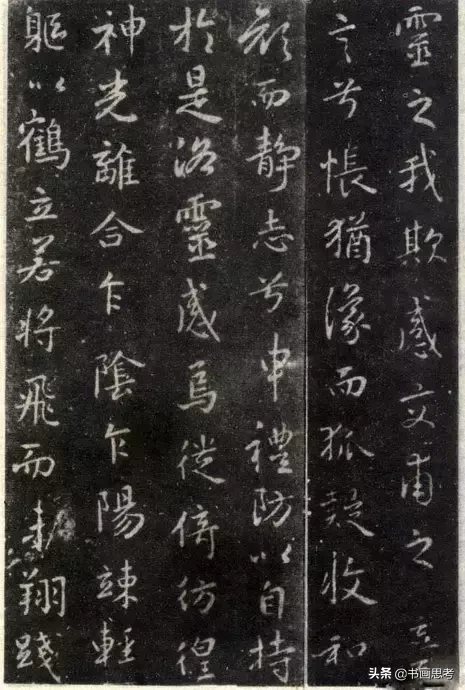 靈之我欺感交甫之
言兮悵猶豫而狐疑收和
顏而靜志兮申禮防以自持
於是洛靈感焉徙倚彷徨
神光離合乍陰乍陽竦輕
軀以鶴立若將飛而未翔踐
头条 @书画思考